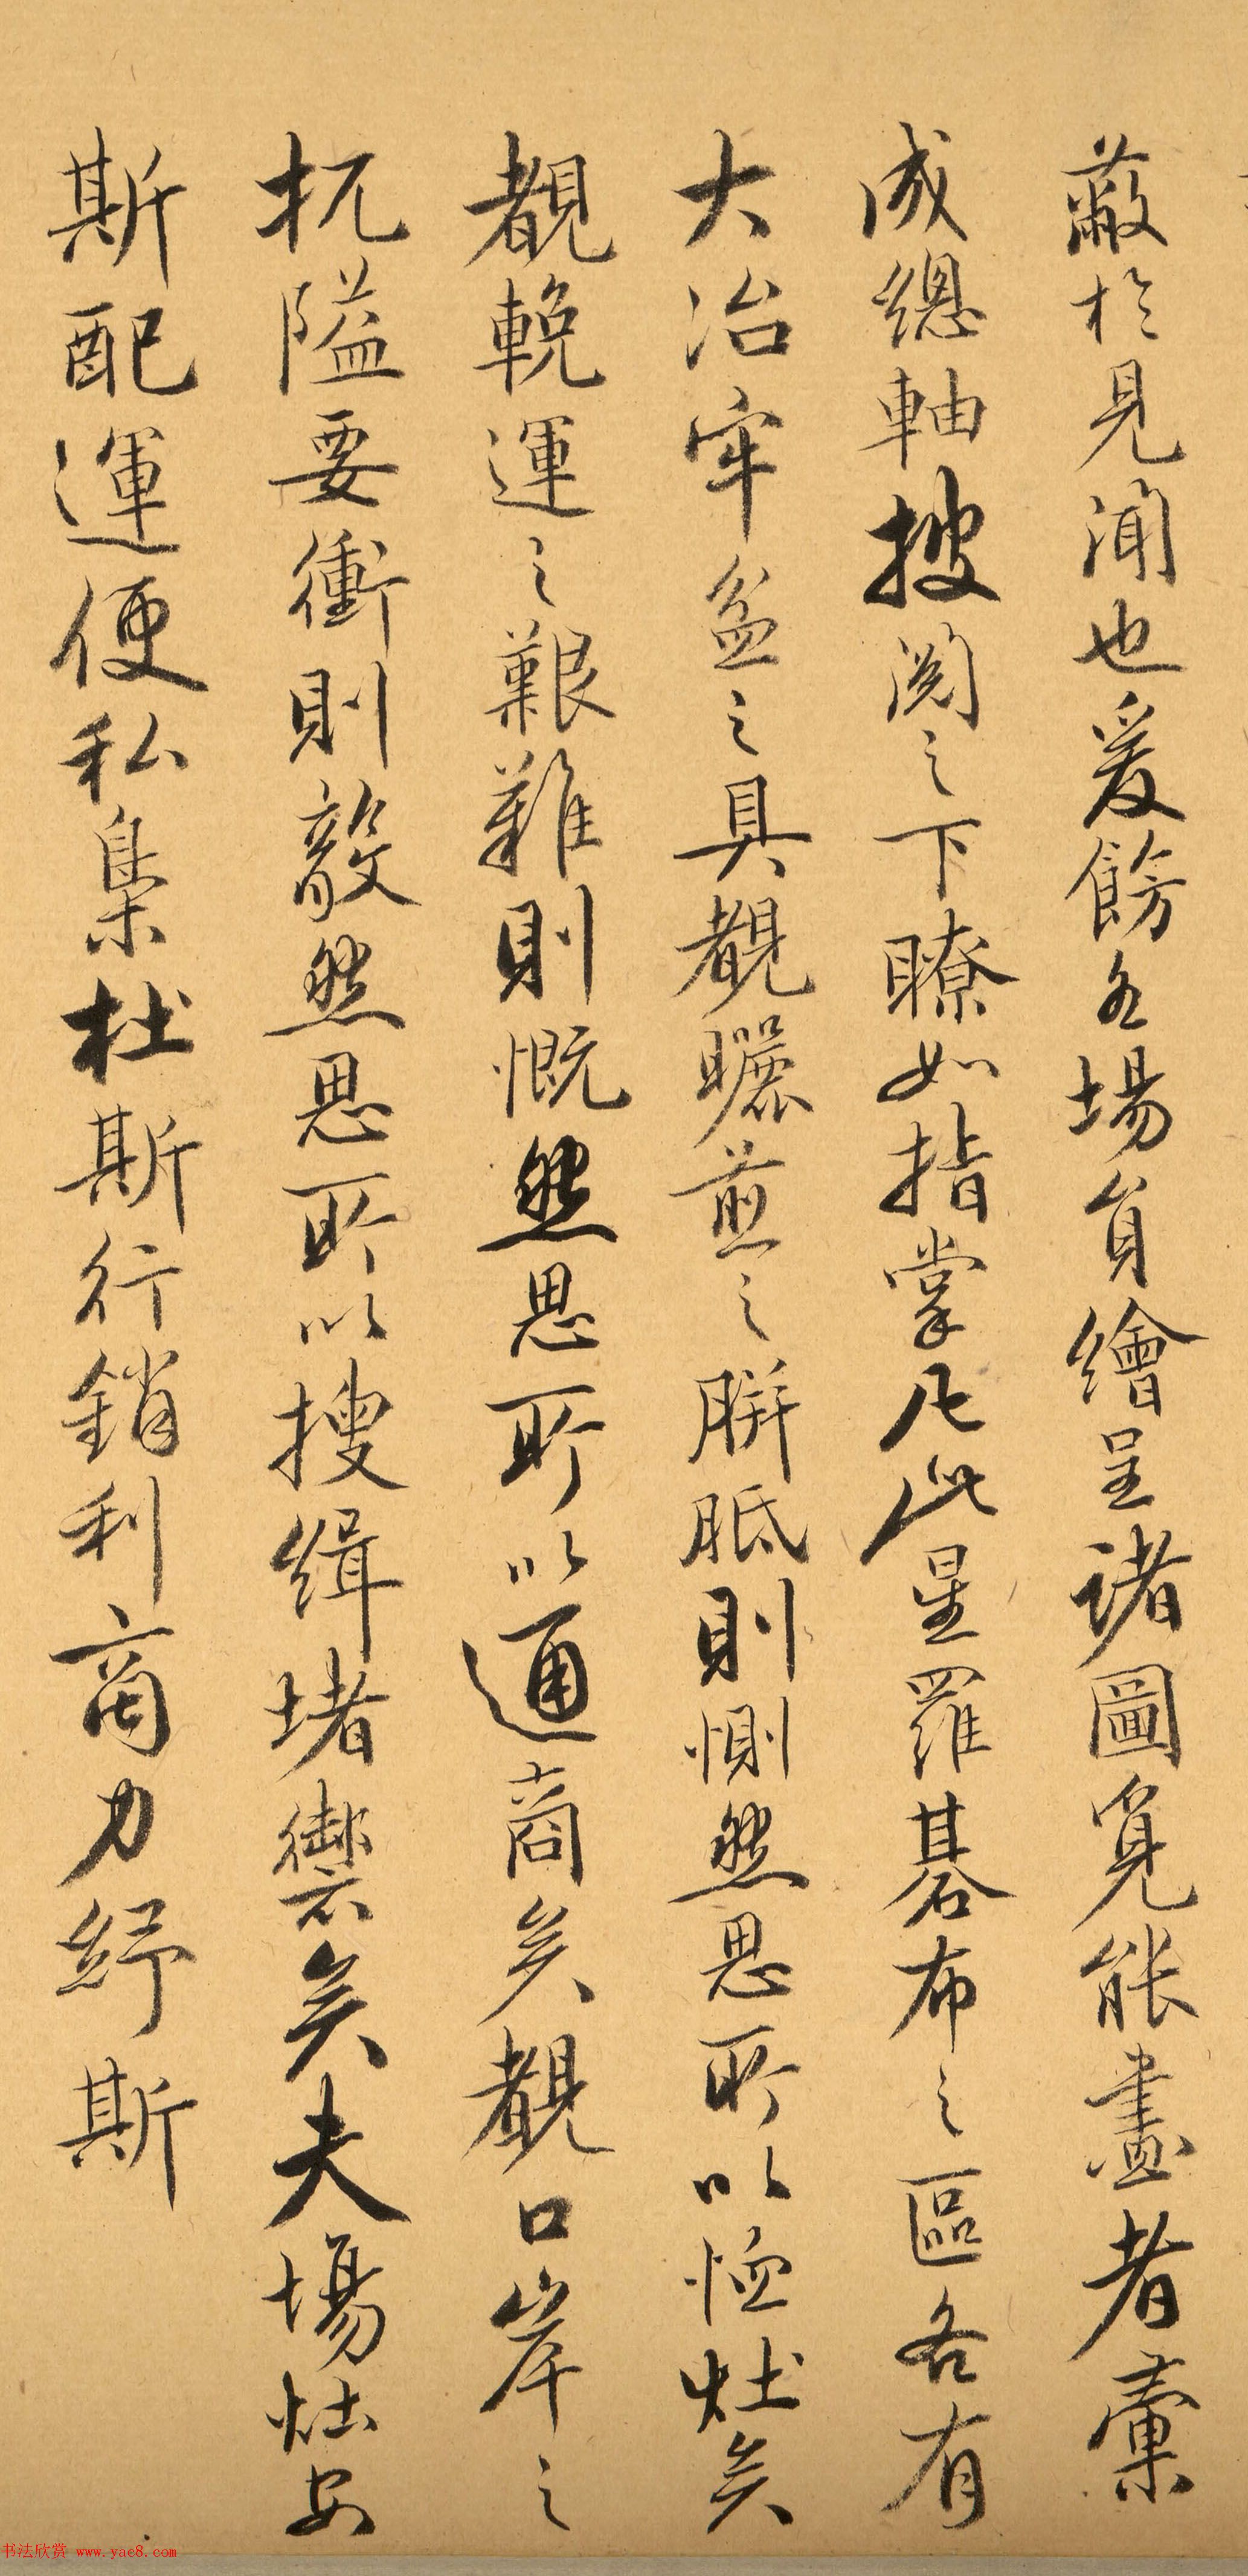 蔽於見聞也爰飭各場員繪呈諸圖寬能盡者彙
成總軸披閱之下瞭如指掌凡此星羅碁布之區各有
大冶牢盆之具觀曬煎之胼胝則惻然思所以恤灶矣
覩輓運之艱難則慨然思所以通商矣覩口岸之
扼隘要衝則敵然思所以搜緝堵禦矣夫場灶安
斯配運便私梟杜斯行銷利商力紓斯
书法欣赏 www.yac8.com